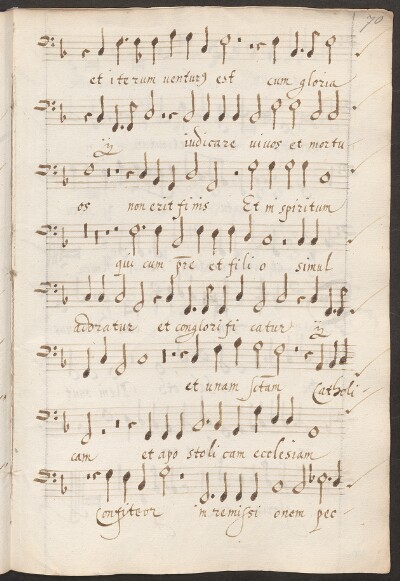 70
et iterum venturus est cum gloria
ij iudicare vivos et mortu
os non erit finis Et in spiritum
qui cum pre et fili o simul
adoratur et conglorifi catur ij
et unam sctam Catholi
cam et apo stoli cam ecclesiam
Confiteor in remissi onem pec